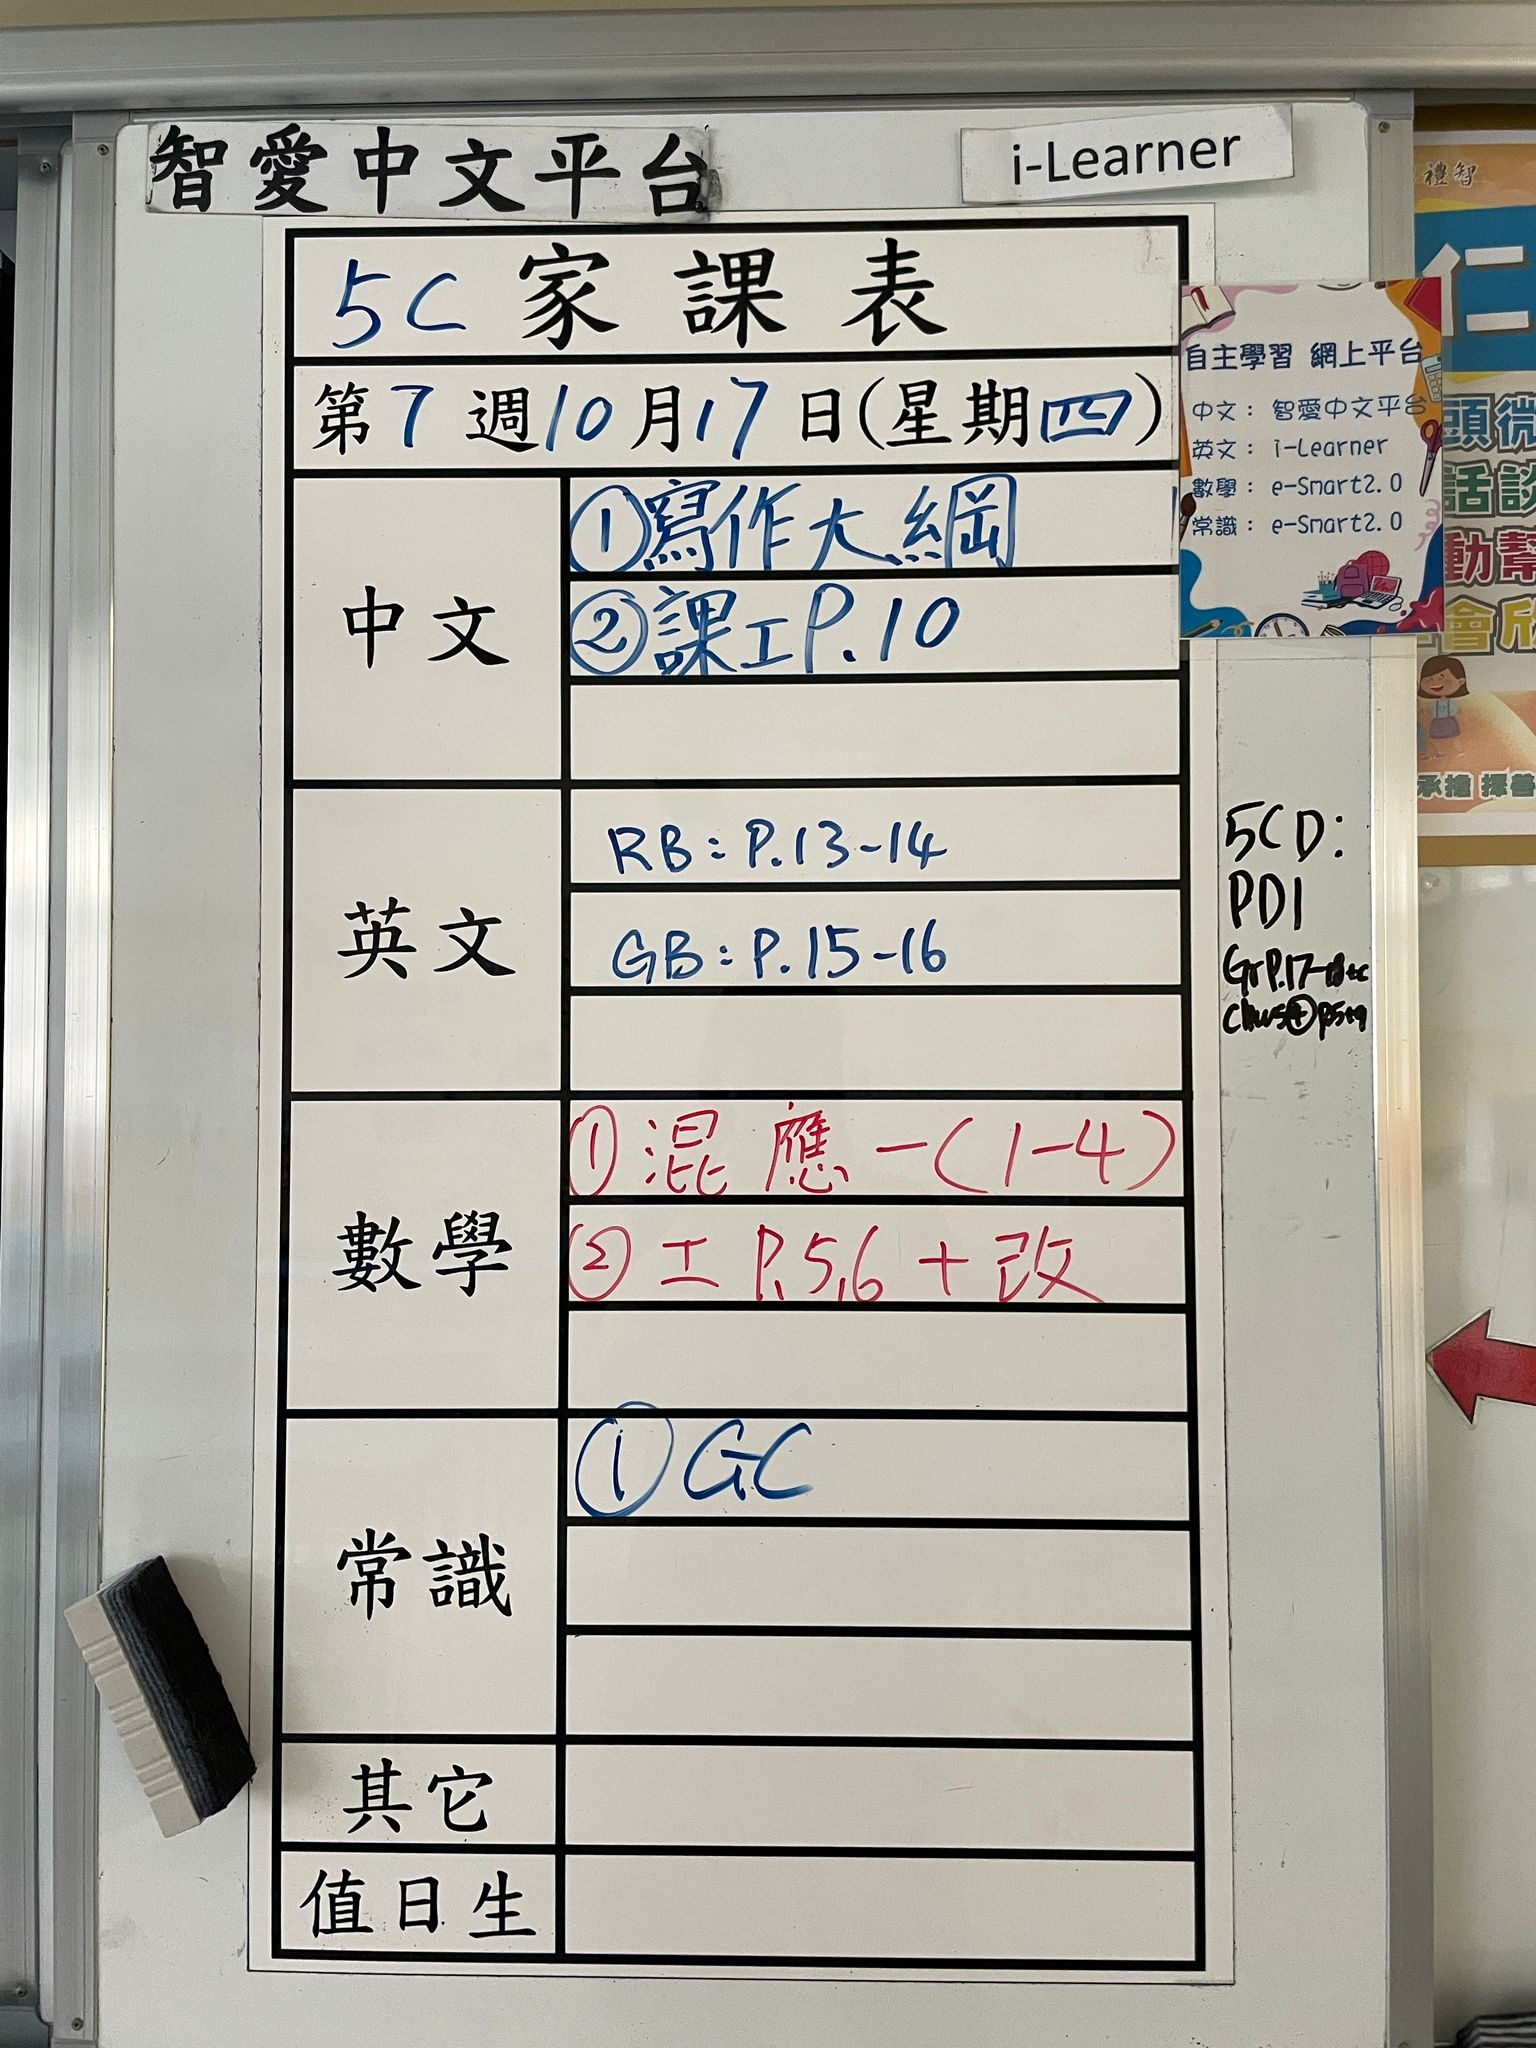 智愛中文平台
i-Learner
5C 家課表
第7週10月17日(星期四)
中文
①寫作大綱
②課工P.10
英文
RB: P.13-14
GB: P.15-16
數學
①混應一(1-4)
②工P.5,6+改
常識
①GC
其它
值日生
自主學習 網上平台
中文: 智愛中文平台
英文: i-Learner
數學: e-Smart2.0
常識: e-Smart2.0
5CD:
PD1
Gr P.17-
禮智
仁
頭微
話談
動幫
會欣
承擔 擇善